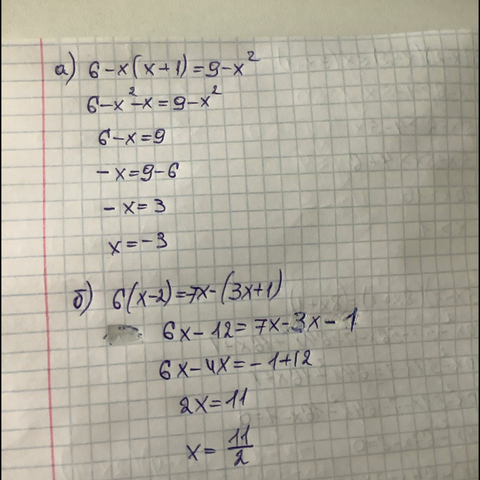 а) 6-x(x+1)=9-x²
6-x²-x=9-x²
6-x=9
-x=9-6
-x=3
x=-3
б) 6(x-2)=7x-(3x+1)
6x-12=7x-3x-1
6x-4x=-1+12
2x=11
x=11/2